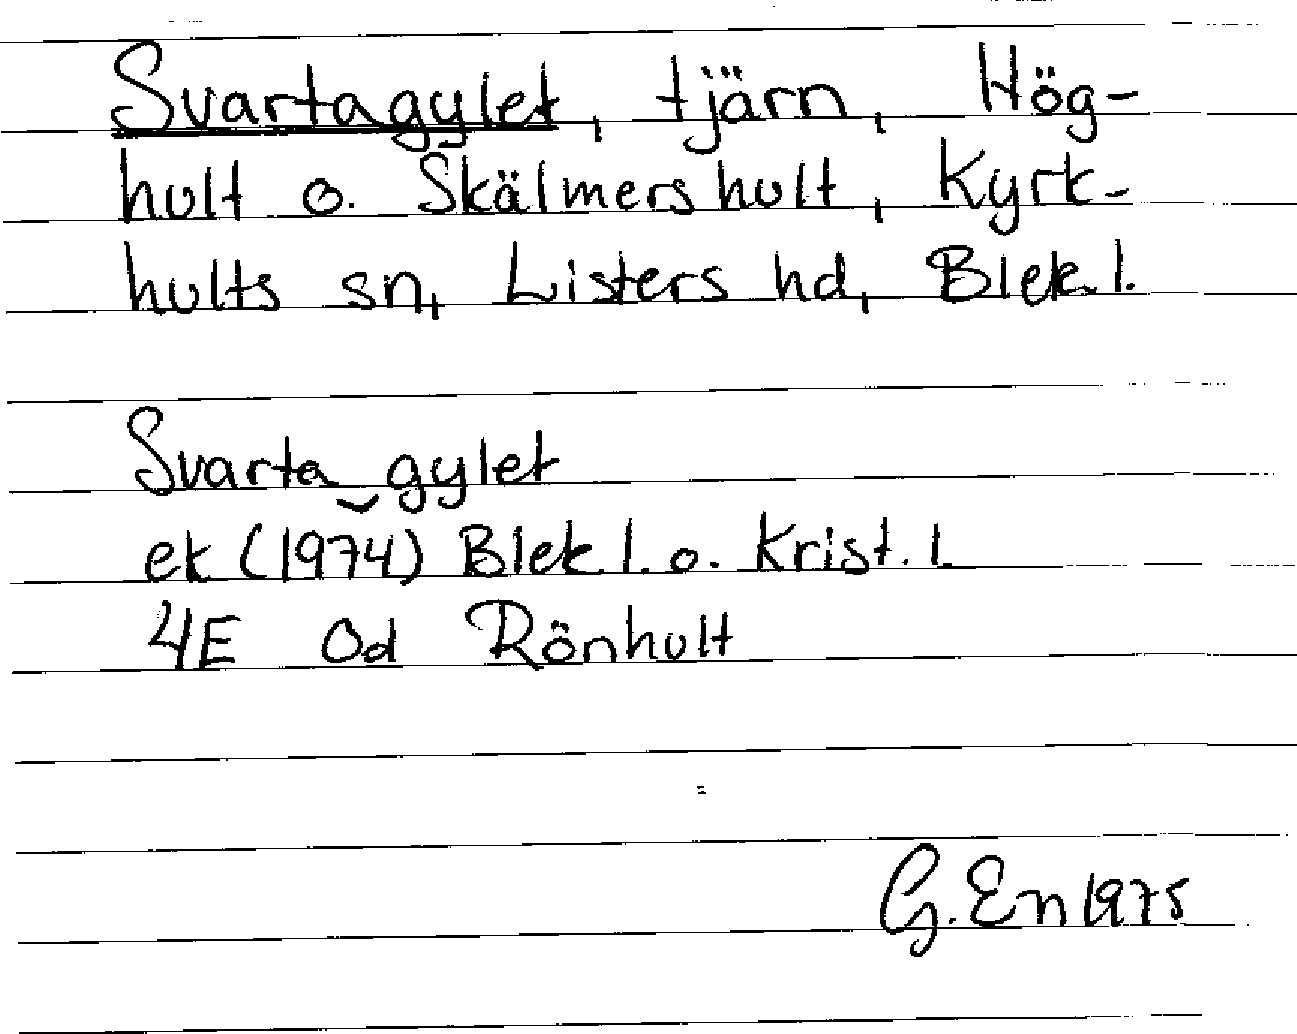 Svartagylet, tjärn, Hög-
hult o. Skälmershult, Kyrk-
hults sn, Listers hd, Blek. l.
Svarta gylet
ek (1974) Blek l. o. Krist. l.
4E Od Rönhult
G. En 1975